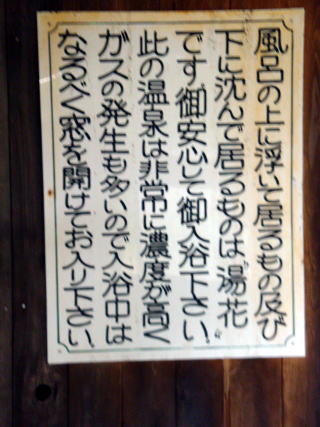 風呂の上に浮いて居るもの及び
下に沈んで居るものは〝湯花
です〟御安心して御入浴下さい。
此の温泉は非常に濃度が高く
ガスの発生も多いので入浴中は
なるべく窓を開けてお入り下さい。